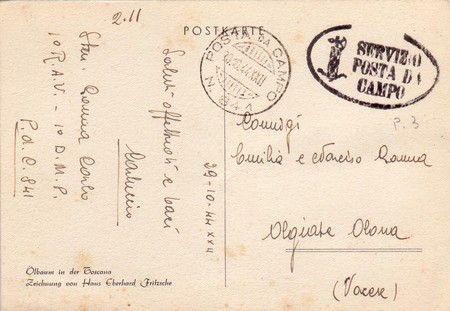 2.11
POSTKARTE
POSTA DA CAMPO
N. 841
SERVIZIO
POSTA DA
CAMPO
P. 3
Coniugi
Emilia e Narciso Ronna
Olgiate Olona
(Varese)
29-10-44 XXII
Saluti affettuosi e baci
Carluccio
Ronna Carlo
1° R.A.V. - 1° D.M.P.
P.d.C. 841
Ölbaum in der Toscana
Zeichnung von Hans Eberhard Fritzsche